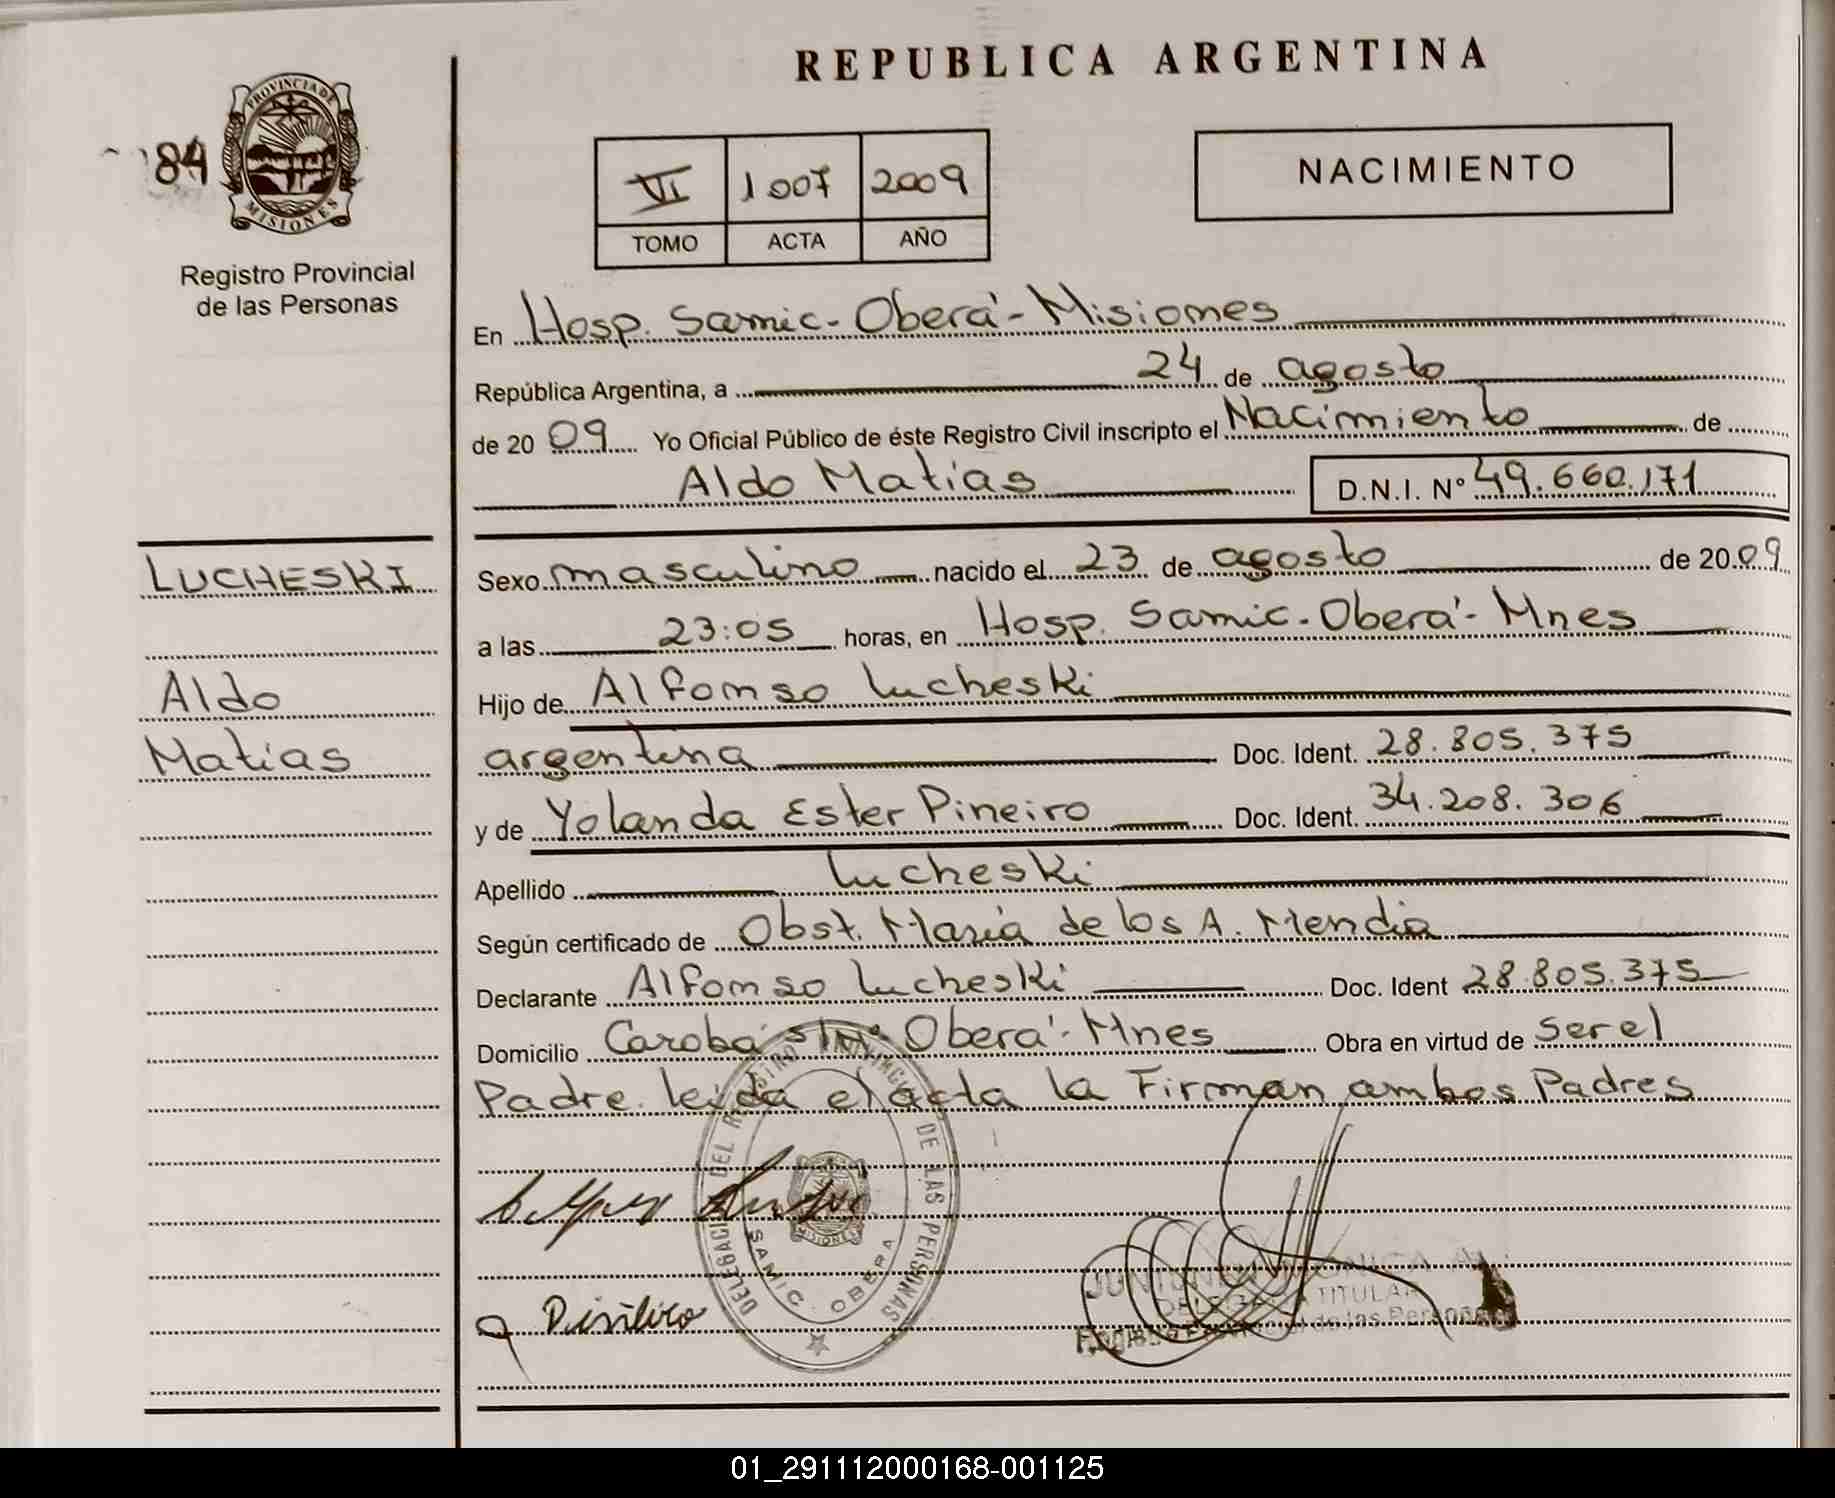 REPUBLICA ARGENTINA
PROVINCIA DE
MISIONES
84
Registro Provincial
de las Personas
VI 1007 2009
TOMO ACTA AÑO
NACIMIENTO
En Hosp. Samic - Oberá - Misiones
República Argentina, a 24 de agosto
de 20 09 Yo Oficial Público de éste Registro Civil inscripto el Nacimiento de
Aldo Matias D.N.I. Nº 49.660.171
LUCHESKI
Aldo
Matias
Sexo masculino nacido el 23 de agosto de 20 09
a las 23:05 horas, en Hosp. Samic - Oberá - Mnes
Hijo de Alfonso Lucheski
argentina Doc. Ident. 28.805.375
y de Yolanda Ester Pineiro Doc. Ident. 34.208.306
Apellido Lucheski
Según certificado de Obst. María de los A. Mendia
Declarante Alfonso Lucheski Doc. Ident 28.805.375
Domicilio Caroba s/nº Oberá - Mnes Obra en virtud de ser el
Padre. leida el acta la Firman ambos Padres
DEL REGISTRO PROVINCIAL DE LAS PERSONAS
SAMIC - OBERA
MISIONES
TITULAR
de las Personas
01_291112000168-001125